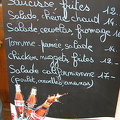 Saucisse frites 12
Salade chèvre chaud 14
Salade crevettes fromage 1
Tomme panée salade 14
Chicken nuggets frites 12
Salade californienne 17
(poulet, ananas)